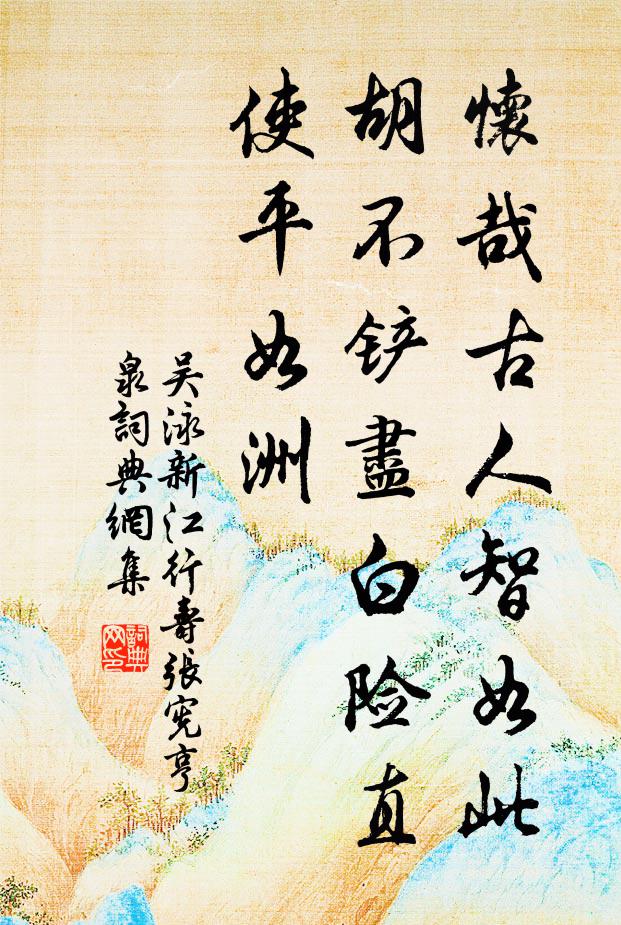 懷哉古人智如此
胡不铲盡白险直
使平如洲
吴泳新江行壽張宪亨
泉詞典網集
詞典
网印